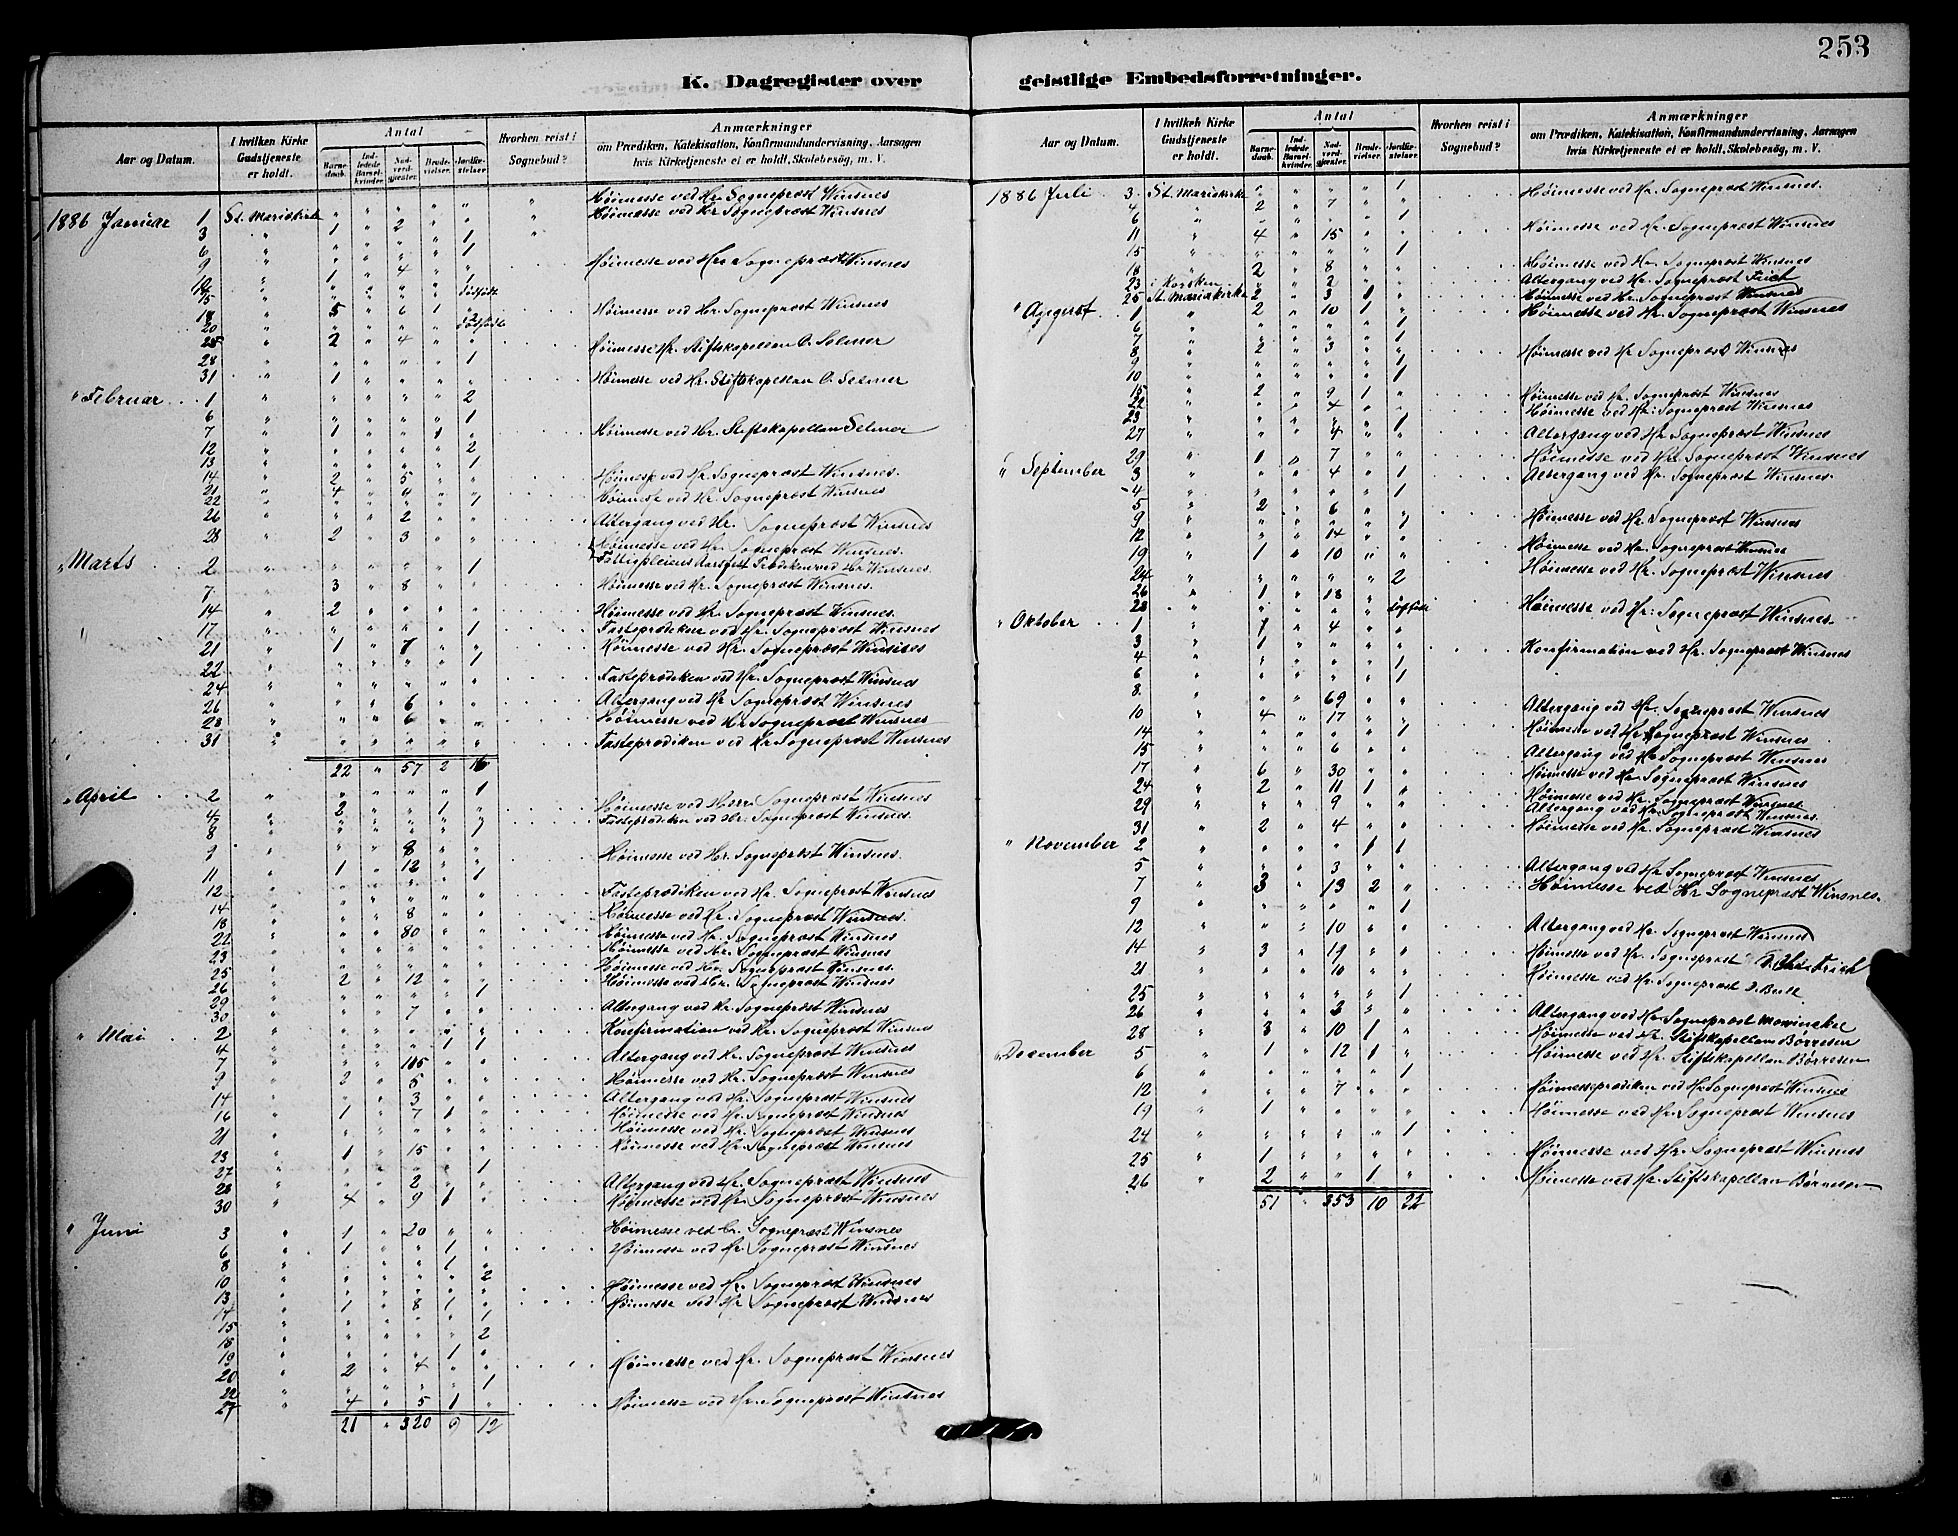 253
K. Dagregister over geistlige Embedsforretninger.
Aar og Datum. | I hvilken Kirke Gudstjeneste er holdt. | Antal | Barnedaab. | Indledede Barselkvinder. | Nadverdgjæster. | Brudevielser. | Jordfæstelser. | Hvorhen reist i Sognebud? | Anmærkninger om Prædiken, Katekisation, Konfirmandundervisning, Aarsagen hvis Kirketjeneste ei er holdt, Skolebesög, m. V.
Høimesse ved Hr. Sogneprest Winsnes
1886 Januar 1 St. Mariakirke " " " " " Høimesse ved Hr Sogneprest Winsnes
3 " 1 " 2 " 1
6 " " " " " 1
9 " " " 4 " " Høimesse ved Hr. Sogneprest Winsnes
18 " 5 " 6 1 " Høimesse ved Hr. Sogneprest Winsnes
20
25 " 2 " 4 " " Høimesse Hr. Stiftskapellan O. Selmer
28 " " " " " 1
31 " 1 " " " " Høimesse ved Hr. Stiftskapellan O. Selmer
" Februar 1 " " " " " 2
6 " " " " " 1
7 " 1 " " 1 " Høimesse ved Hr. Stiftskapellan Selmer
12 " " " " " 2
13 " " " " " 1
14 " 2 " 5 " " Høimesse ved Hr. Sogneprest Winsnes.
21 " 4 " 4 " " Høimesse ved Hr. Sogneprest Winsnes
22 " " " " " 1
26 " " " 2 " " Altergang ved Hr. Sogneprest Winsnes
28 " 2 " 3 " " Høimesse ved Hr. Sogneprest Winsnes.
" Marts 2 " " " " " 1
7 " 3 " 8 " " Høimesse ved Hr. Sogneprest Winsnes.
14 " 2 " " " " Høimesse ved Hr. Sogneprest Winsnes.
17 " " " " " 1 Fasteprædiken ved Hr. Sogneprest Winsnes
21 " 1 " 7 " " Høimesse ved Hr. Sogneprest Winsnes
22 " " " " " 1
24 " " " " " " Fasteprædiken ved Hr. Sogneprest Winsnes
26 " " " 6 " " Altergang ved Hr Sogneprest Winsnes
28 " " " 6 " " Høimesse ved Hr Sogneprest Winsnes
31 " " " " " " Fasteprædiken ved Hr Sogneprest Winsnes
22 " 57 2 16
" April 2 " " " " " 1
4 " 2 " " 1 " Høimesse ved Herr Sogneprest Winsnes
8 Fasteprædiken ved Hr. Sogneprest Winsnes.
9 " " " 8 " "
11 " 1 " 12 " 1 Høimesse ved Hr. Sogneprest Winsnes.
12
14 Fasteprædiken ved Hr. Sogneprest Winsnes
18 " " " 8 " " Høimesse ved Hr. Sogneprest Winsnes.
22 " " " 80 " " Høimesse ved Hr. Sogneprest Winsnes
23 Høimesse ved Hr. Sogneprest Winsnes
25 " Høimesse ved Hr. Sogneprest Winsnes.
26 " 2 " 12 " " Høimesse ved Hr. Sogneprest Winsnes
29 " " " " " 1
30 " " " 7 " " Altergang ved Hr. Sogneprest Winsnes
" Mai 2 " " " " " " Konfirmation ved Hr. Sogneprest Winsnes
4 " " " " 1 1
7 " " " 105 " " Altergang ved Hr. Sogneprest Winsnes
9 " 2 " 5 " " Høimesse ved Hr. Sogneprest Winsnes
14 " " " 3 " " Altergang ved Hr. Sogneprest Winsnes
16 " 1 " 7 1 " Høimesse ved Hr. Sogneprest Winsnes
21 " " " " " " Høimesse ved Hr. Sogneprest Winsnes
23 " 1 " 15 " " Høimesse ved Hr. Sogneprest Winsnes
27 " " " " " 1
28 " " " 2 " " Altergang ved Hr. Sogneprest Winsnes
30 " 4 " 9 1 " Høimesse ved Hr. Sogneprest Winsnes
" Juni 3 " 1 " 20 " " Høimesse ved hr. Sogneprest Winsnes
6 " 1 " " 1 " Høimesse ved Hr. Sogneprest Winsnes
8 " " " " 1 "
10 " " " " " 2 Høimesse ved Hr. Sogneprest Winsnes
13 " 1 " 8 1 " Høimesse ved Hr Sogneprest Winsnes
14 " " " " " 1
15 " " " " " 2
18
19 " " " " 1 "
20 " 2 " 4 " " Høimesse ved Hr. Sogneprest Winsnes
22 " " " " " 1
27 " 4 " 5 1 " Høimesse ved Hr. Sogneprest Winsnes
21 " 320 9 12
Aar og Datum. | I hvilken Kirke Gudstjeneste er holdt. | Antal | Barnedaab. | Indledede Barselkvinder. | Nadverdgjæster. | Brudevielser. | Jordfæstelser. | Hvorhen reist i Sognebud? | Anmærkninger om Prædiken, Katekisation, Konfirmandundervisning, Aarsagen hvis Kirketjeneste ei er holdt, Skolebesög, m. V.
1886 Juli 3. St. Mariakirke " " " " 1 Høimesse ved Hr. Sogneprest Winsnes.
4 " 2 " 7 " "
6 " " " " " 1
11 " 4 " 15 " " Høimesse ved Hr. Sogneprest Winsnes
15 " " " " " 1
18 " 2 " 8 " " Høimesse ved Hr. Sogneprest Winsnes
23 " " 2 " " Altergang ved Hr. Sogneprest Frich
25 St. Mariakirke 2 " 3 1 " Høimesse ved Hr. Sogneprest Winsnes
" August 1 " 2 " 10 1 " Høimesse ved Hr. Sogneprest Winsnes
6 " " " " " 1
7 " " " " " 1
8 " 2 " 3 " " Høimesse ved Hr Sogneprest Winsnes
9 " " " " " 1
10 " " " " " 1
15 " 2 " 9 1 " Høimesse ved Hr. Sogneprest Winsnes
22 " " " 4 " " Høimesse ved Hr. Sogneprest Winsnes
23 " " " " " 1
27 " " " 4 " " Altergang ved Hr Sogneprest Winsnes
29 " 1 " 7 " " Høimesse ved Hr. Sogneprest Winsnes
" September 3 " " " 4 " 1 Altergang ved Hr. Sogneprest Winsnes.
4 " " " " " 1
5 " 2 " 6 " "
9 " " " " " 1 Høimesse ved Hr. Sogneprest Winsnes
12 " " " 14 " "
19 " 1 " 10 " " Høimesse ved Hr. Sogneprest Winsnes
24 " " " " " 2 Høimesse ved Hr. Sogneprest Winsnes
26 " 1 " 18 " "
28 Høimesse ved Hr. Sogneprest Winsnes.
" Oktober 1 " 1 " 4 " "
3 " 1 " " " " Konfirmation ved Hr. Sogneprest Winsnes
4 " " " " " 1
6 " " " " " 1
8. " " " 69 " " Altergang ved Hr. Sogneprest Winsnes
10 " 4 " 17 " " Høimesse ved Hr Sogneprest Winsnes
14 " " " " " 1
15 " " " 6 " " Altergang ved Hr Sogneprest Winsnes
17 " 6 " 30 " " Høimesse ved Hr. Sogneprest Winsnes
24 " 2 " 11 1 " Høimesse ved Hr. Sogneprest Winsnes
29 " " " 9 " " Altergang ved Hr. Sogneprest Winsnes.
31 " 2 " 4 " " Høimesse ved Hr. Sogneprest Winsnes
" November 2 " " " " 1 1
5 " " " 3 " " Altergang ved Hr Sogneprest Winsnes
7 " 3 " 13 2 " Høimesse ved Hr Sogneprest Winsnes.
9 " " " " " 1
12 " " " 10 " " Altergang ved Hr. Sogneprest Winsnes
14 " 3 " 19 " " Høimesse ved Hr. Sogneprest Frich
21 " " " 10 " " Høimesse ved Hr. Sogneprest J. Bull
25 " " " " " 1
26 " " " 3 " " Altergang ved Hr Sogneprest Mowinckel
28 " 3 " 10 1 " Høimesse ved Hr. Stiftskapellan Børresen
" December 5 " 1 " 12 1 " Høimesse ved Hr. Stiftskapellan Børresen
6 " " " " " 1
12 " " " 7 " " Høimesseprædiken ved Hr Sogneprest Winsnes
19 " 1 " " " " Høimesse ved Hr. Sogneprest Winsnes
24 " " " " " 1
25 " 1 " " " " Høimesse ved Hr. Sogneprest Winsnes
26 " 2 " " 1 " Høimesse ved Hr. Stiftskapellan Børresen
51 " 353 10 22